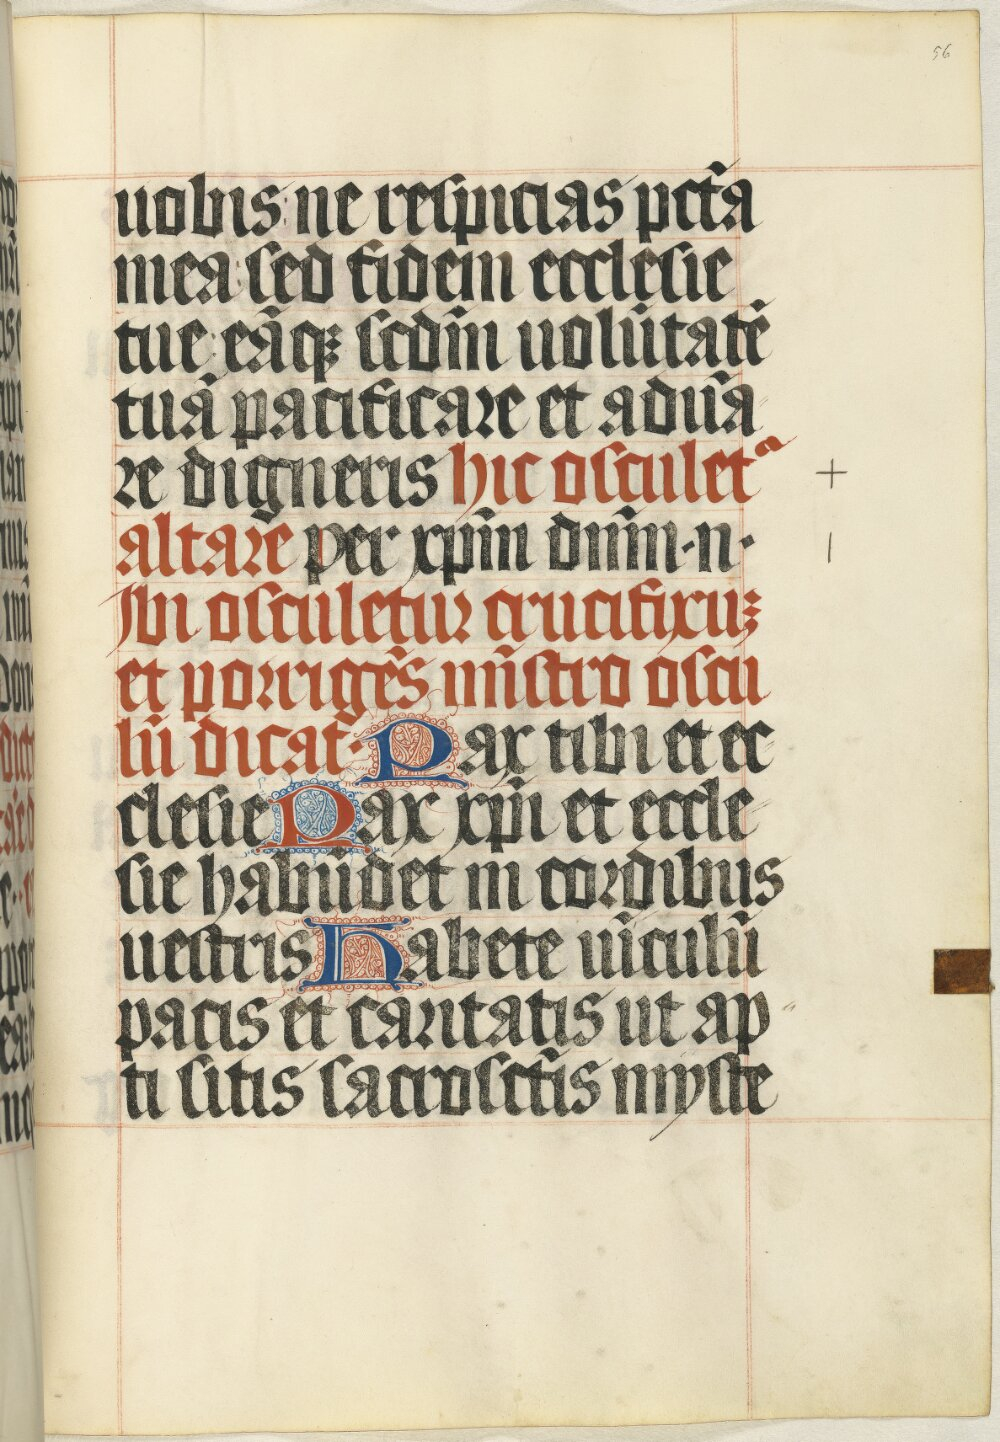 56
uobis ne respicias pctā
mea: sed fidem ecclesie
tue: eāqꝫ scdm̄ uolūtatē
tuā pacificare et aduīa
re digneris hic osculetᵃ
altare per xp̄m dnm̄·n·
Ibi osculetur crucifixuꝫ
et porrigēs mīstro oscu
lū dicat· Pax tibi et ec
clesie Pax xp̄i et eccle
sie habūdet in cordibus
uestris Habete uīculū
pacis et caritatis ut ap
ti sitis sacrosctīs myste